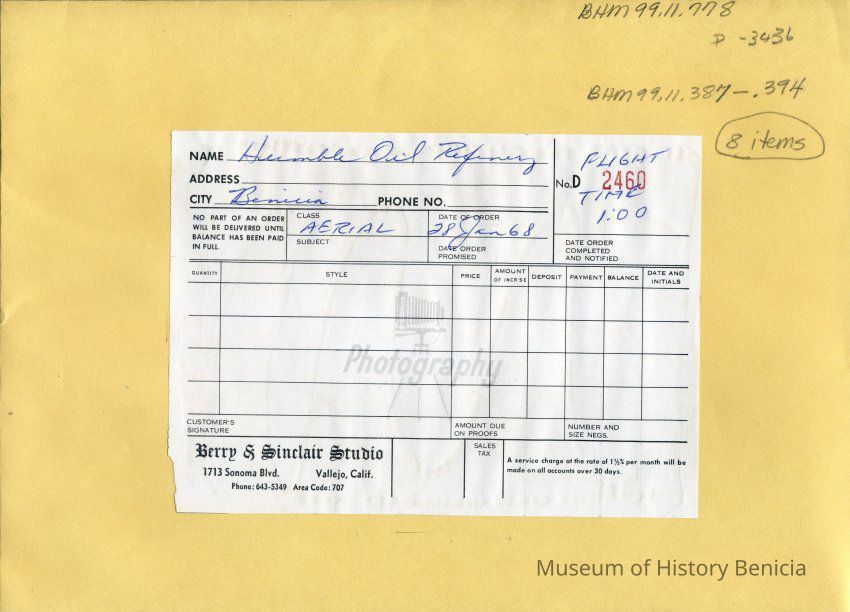 BHM 99.11.778
D -3436
BHM 99.11.387-.394
8 items
NAME Humble Oil Refinery
ADDRESS
CITY Benicia PHONE NO.
No.D 2460
FLIGHT
TIME
1:00
NO PART OF AN ORDER
WILL BE DELIVERED UNTIL
BALANCE HAS BEEN PAID
IN FULL.
CLASS
AERIAL
SUBJECT
DATE OF ORDER
28 Jan 68
DATE ORDER
PROMISED
DATE ORDER
COMPLETED
AND NOTIFIED
QUANTITY STYLE PRICE AMOUNT OF INCR'SE DEPOSIT PAYMENT BALANCE DATE AND INITIALS
Photography
CUSTOMER'S
SIGNATURE
AMOUNT DUE
ON PROOFS
NUMBER AND
SIZE NEGS.
Berry & Sinclair Studio
1713 Sonoma Blvd. Vallejo, Calif.
Phone: 643-5349 Area Code: 707
SALES
TAX
A service charge at the rate of 1½% per month will be
made on all accounts over 30 days.
Museum of History Benicia